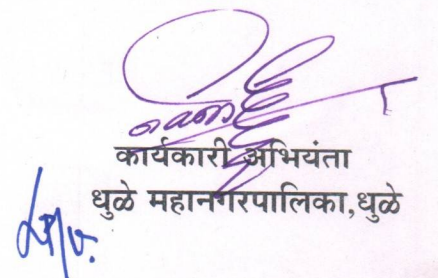 कार्यकारी अभियंता
धुळे महानगरपालिका,धुळे